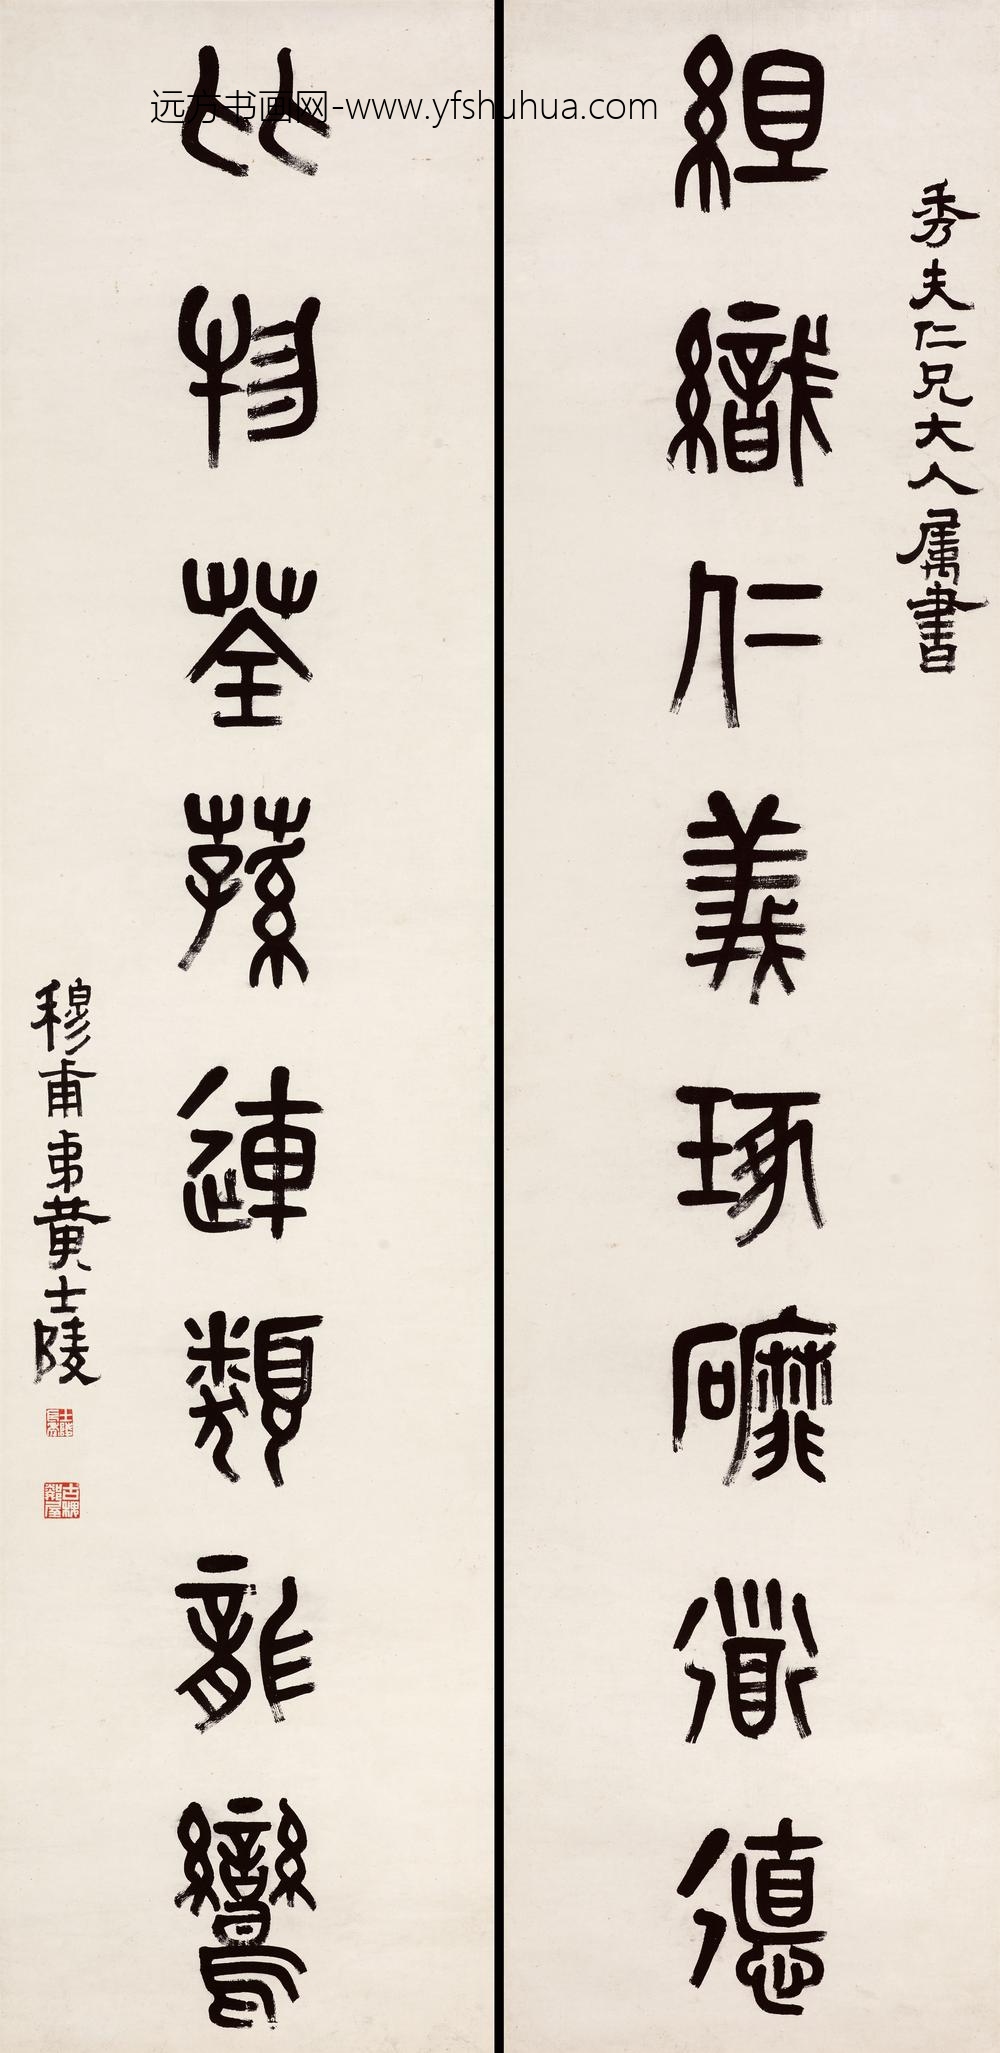 秀夫仁兄大人属書
組織仁義琢䃺道德
比物荃蓀連類龍鸞
穆甫弟黄士陵
古槐鄰屋
远方书画网-www.yfshuhua.com